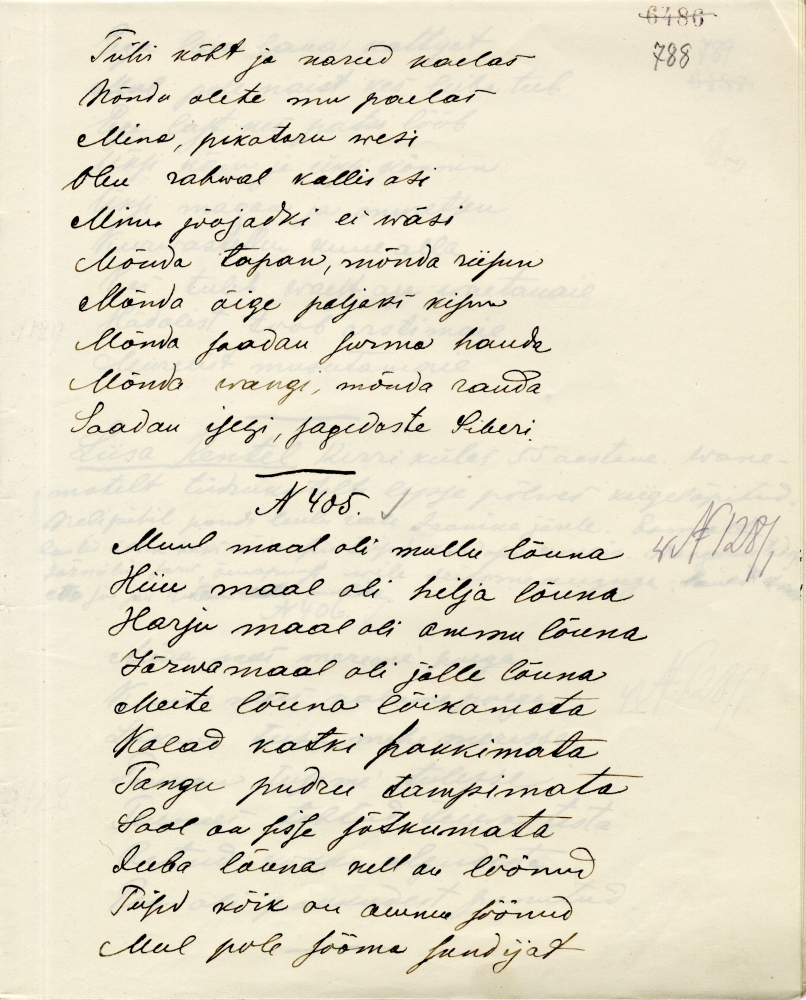 6486
788
Tühi kõht ja narud kaelas
Nõnda olete mu paelas
Mina, pikatoru wesi
Olen rahwal kallis asi
Minu joojadki ei wäsi
Mõnda tapan, mõnda riisun
Mõnda õige paljaks kisun
Mõnda saadan surma hauda
Mõnda wangi, mõnda rauda
Saadan isegi, sagedaste Siberi.
N 405.
Muul maal oli mullu lõuna
N 128/1
Hiiu maal oli hilja lõuna
Harju maal oli ammu lõuna
Järwamaal oli jälle lõuna
Meite lõuna lõikamata
Kalad katki pakkimata
Tangu pudru tampimata
Sool on sisse sõtkumata
Juba lõuna kell on löönud
Teised kõik on ammu söönud
Meil pole sööma sundijat